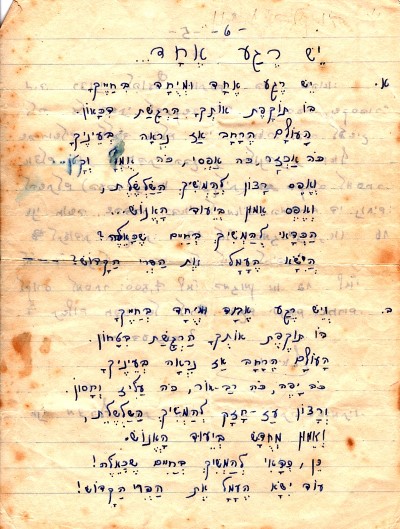 -6- -5-
יֵשׁ רֶגַע אֶחָד...
א. יֵשׁ רֶגַע אֶחָד וּמְיֻחָד בְּחַיֶּיךָ.
בּוֹ תּוֹקֶפֶת אוֹתְךָ הַרְגָּשַׁת דִּכָּאוֹן.
הָעוֹלָם הָרָחָב אָז נִרְאֶה בְּעֵינֶיךָ
כֹּה אַכְזָר, כֹּה אַפְסִי, כֹּה
וְאֶפֶס רָצוֹן לְהַמְשִׁיךְ הַשַּׁלְשֶׁלֶת,
וְאֶפֶס אֵמוּן בְּיִעוּד הָאֱנוֹשׁ.
הַכְדַאי לְהַמְשִׁיךְ בְּחַיִּים שֶׁכָּאֵלֶּה?
הֲיִשָּׂא הֶעָמָל אֶת הַפְּרִי הַקָּדוֹשׁ?
ב. וְיֵשׁ רֶגַע אֶחָד וּמְיֻחָד בְּחַיֶּיךָ.
בּוֹ תּוֹקֶפֶת אוֹתְךָ הַרְגָּשַׁת בִּטָּחוֹן.
הָעוֹלָם הָרָחָב אָז נִרְאֶה בְּעֵינֶיךָ
כֹּה יָפֶה, כֹּה רַב-אוֹר, כֹּה עַלִּיז וְחָסוֹן
וְרָצוֹן עַז-חָזָק לְהַמְשִׁיךְ הַשַּׁלְשֶׁלֶת,
וְאֵמוּן מְחֻדָּשׁ בְּיִעוּד הָאֱנוֹשׁ.
כֵּן, כְּדַאי לְהַמְשִׁיךְ בְּחַיִּים שֶׁכָּאֵלֶּה!
עוֹד יִשָּׂא הֶעָמָל אֶת הַפְּרִי הַקָּדוֹשׁ!